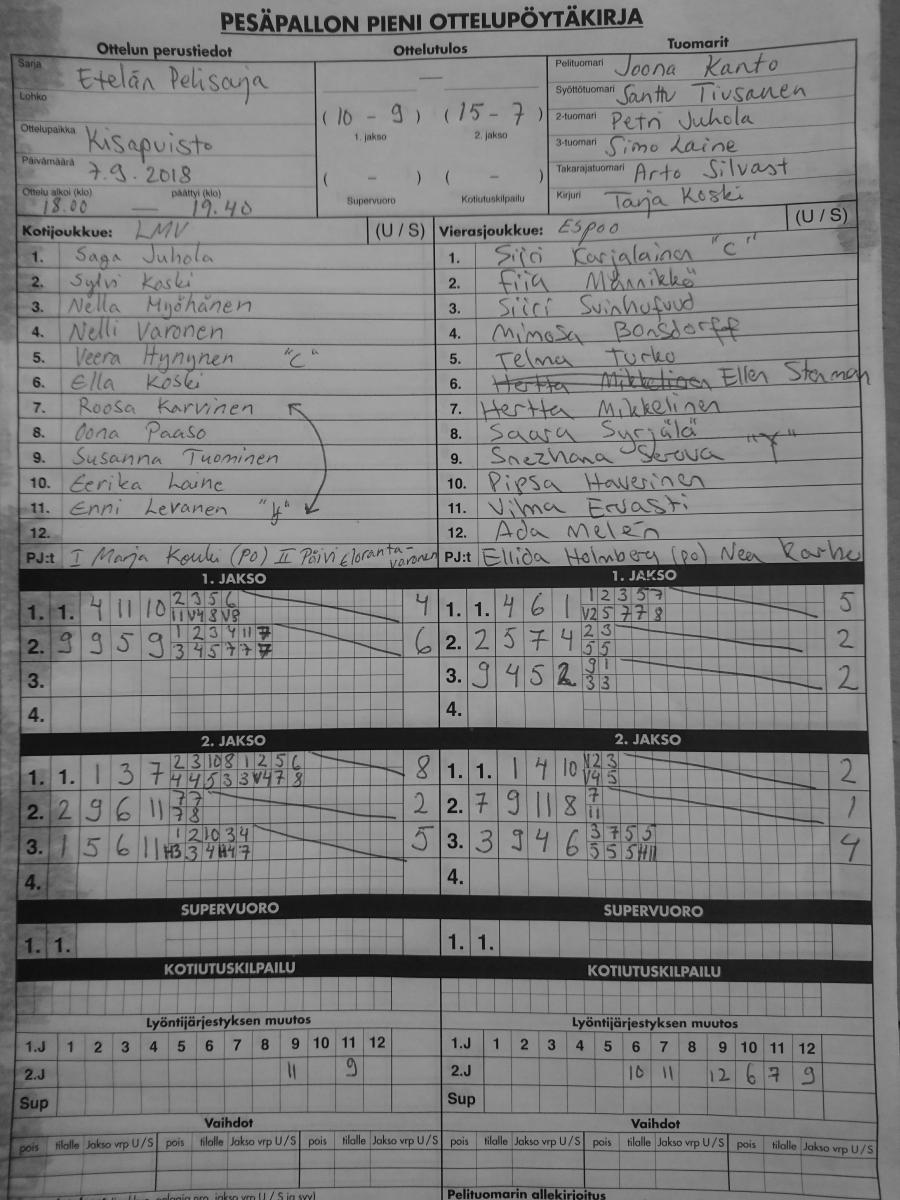 PESÄPALLON PIENI OTTELUPÖYTÄKIRJA
Ottelun perustiedot Ottelutulos Tuomarit
Sarja Etelän Pelisarja — Pelituomari Joona Kanto
Lohko Syöttötuomari Santtu Tiusanen
(10 - 9) (15 - 7) 2-tuomari Petri Juhola
Ottelupaikka Kisapuisto 1. jakso 2. jakso 3-tuomari Simo Laine
Päivämäärä 7.9.2018 ( - ) ( - ) Takarajatuomari Arto Silvast
Ottelu alkoi (klo) päättyi (klo) Supervuoro Kotiutuskilpailu Kirjuri Tarja Koski
18.00 — 19.40
Kotijoukkue: LMV (U / S) Vierasjoukkue: Espoo (U / S)
1. Saga Juhola 1. Siiri Karjalainen "C"
2. Sylvi Koski 2. Fiia Männikkö
3. Nella Myöhänen 3. Siiri Svinhufvud
4. Nelli Varonen 4. Mimosa Bonsdorff
5. Veera Hynynen "C" 5. Telma Turko
6. Ella Koski 6. Hertta Mikkelinen Ellen Stenman
7. Roosa Karvinen 7. Hertta Mikkelinen
8. Oona Paaso 8. Saara Syrjälä
9. Susanna Tuominen 9. Snezhana Serova "Y"
10. Eerika Laine 10. Pipsa Haverinen
11. Enni Levanen "Y" 11. Vilma Ervasti
12. 12. Ada Melén
PJ:t I Marja Kouki (PO) II Päivi Eloranta-Varonen PJ:t Ellida Holmberg (po) Nea Karhu
1. JAKSO 1. JAKSO
1. 1. 4 11 10 2 3 5 6 4 1. 1. 4 6 1 1 2 3 5 7 5
11 V4 8 V8 V2 5 7 7 8
2. 9 9 5 9 1 2 3 4 11 7 6 2. 2 5 7 4 2 3 2
3 4 5 7 7 7 5 5
3. 3. 9 4 5 2 9 1 2
3 3
4. 4.
2. JAKSO 2. JAKSO
1. 1. 1 3 7 2 3 10 8 1 2 5 6 8 1. 1. 1 4 10 V2 3 2
4 4 5 3 3 V4 7 8 V4 5
2. 2 9 6 11 7 7 2 2. 7 9 11 8 7 1
7 8 11
3. 1 5 6 11 1 2 10 3 4 5 3. 3 9 4 6 3 7 5 5 4
H3 3 4 H4 7 5 5 5 H11
4. 4.
SUPERVUORO SUPERVUORO
1. 1. 1. 1.
KOTIUTUSKILPAILU KOTIUTUSKILPAILU
Lyöntijärjestyksen muutos Lyöntijärjestyksen muutos
1.J 1 2 3 4 5 6 7 8 9 10 11 12 1.J 1 2 3 4 5 6 7 8 9 10 11 12
2.J 11 9 2.J 10 11 12 6 7 9
Sup Sup
Vaihdot Vaihdot
pois tilalle Jakso vrp U / S pois tilalle Jakso vrp U / S pois tilalle Jakso vrp U / S pois tilalle Jakso vrp U / S pois tilalle Jakso vrp U / S pois tilalle Jakso vrp U / S
Pelituomarin allekirjoitus